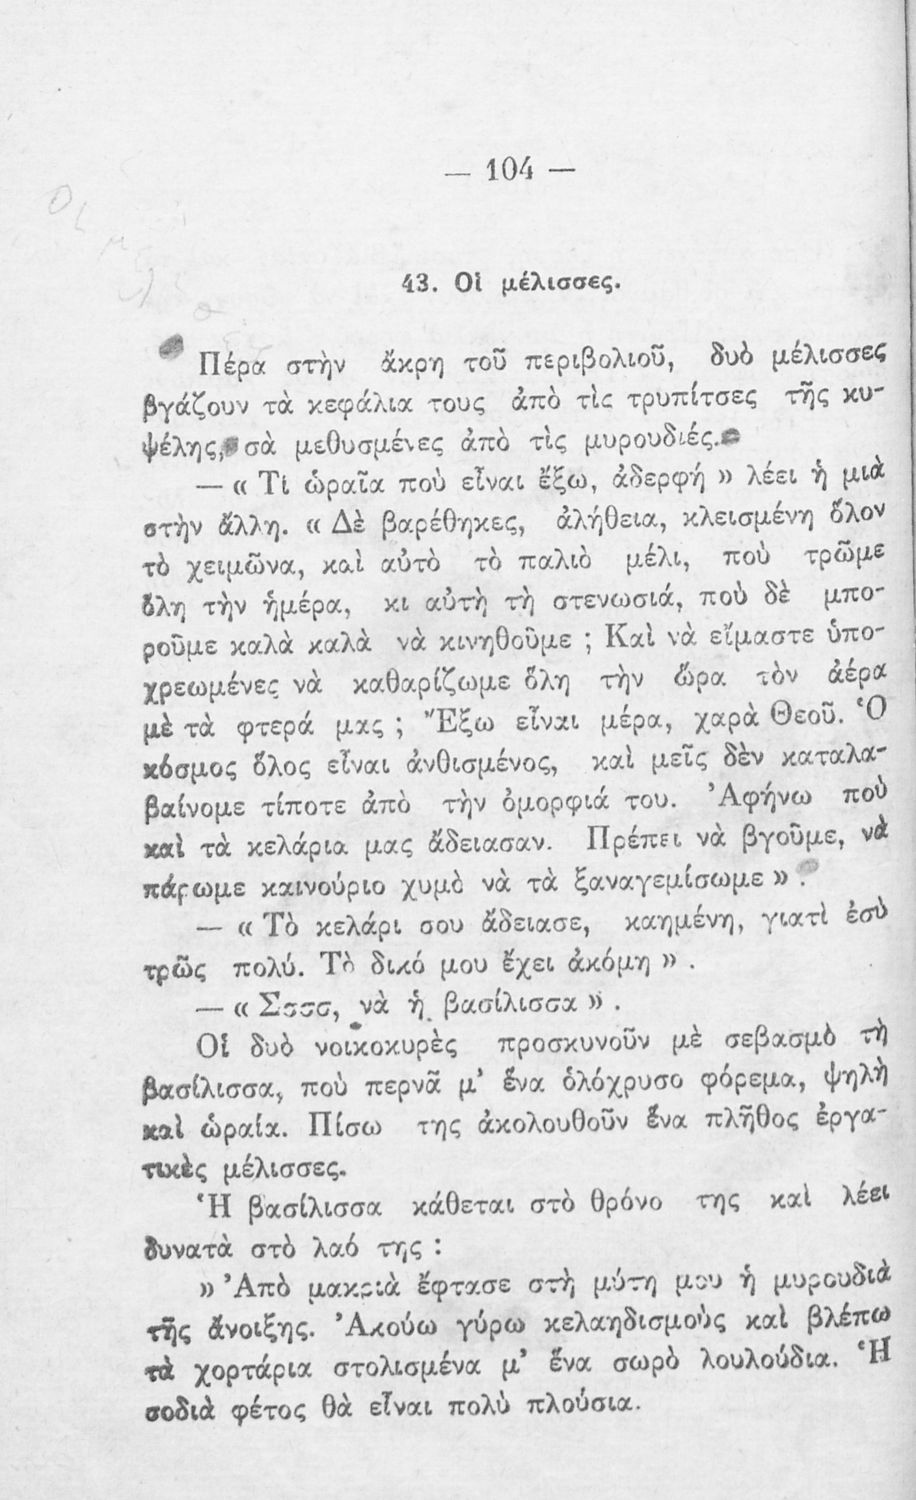 — 104 —
43. Οἱ μέλισσες.
Πέρα στὴν ἄκρη τοῦ περιβολιοῦ, δυὸ μέλισσες
βγάζουν τὰ κεφάλια τους ἀπὸ τὶς τρυπίτσες τῆς κυ-
ψέλης, σὰ μεθυσμένες ἀπὸ τὶς μυρουδιές.
— « Τὶ ὡραῖα ποὺ εἶναι ἔξω, ἀδερφή » λέει ἡ μιὰ
στὴν ἄλλη. « Δὲ βαρέθηκες, ἀλήθεια, κλεισμένη ὅλον
τὸ χειμῶνα, καὶ αὐτὸ τὸ παλιὸ μέλι, ποὺ τρῶμε
ὅλη τὴν ἡμέρα, κι αὐτὴ τὴ στενωσιά, ποὺ δὲ μπο-
ροῦμε καλὰ καλὰ νὰ κινηθοῦμε ; Καὶ νὰ εἴμαστε ὑπο-
χρεωμένες νὰ καθαρίζωμε ὅλη τὴν ὥρα τὸν ἀέρα
μὲ τὰ φτερά μας ; Ἔξω εἶναι μέρα, χαρὰ Θεοῦ. Ὁ
κόσμος ὅλος εἶναι ἀνθισμένος, καὶ μεῖς δὲν καταλα-
βαίνομε τίποτε ἀπὸ τὴν ὀμορφιά του. Ἀφήνω ποὺ
καὶ τὰ κελάρια μας ἄδειασαν. Πρέπει νὰ βγοῦμε, νὰ
πάρωμε καινούριο χυμὸ νὰ τὰ ξαναγεμίσωμε » .
— « Τὸ κελάρι σου ἄδειασε, καημένη, γιατὶ ἐσὺ
τρῶς πολύ. Τὸ δικό μου ἔχει ἀκόμη » .
— « Σσσσ, νὰ ἡ βασίλισσα » .
Οἱ δυὸ νοικοκυρὲς προσκυνοῦν μὲ σεβασμὸ τὴ
βασίλισσα, ποὺ περνᾶ μ’ ἕνα ὁλόχρυσο φόρεμα, ψηλὴ
καὶ ὡραία. Πίσω της ἀκολουθοῦν ἕνα πλῆθος ἐργα-
τικὲς μέλισσες.
Ἡ βασίλισσα κάθεται στὸ θρόνο της καὶ λέει
δυνατὰ στὸ λαό της :
» Ἀπὸ μακριὰ ἔφτασε στὴ μύτη μου ἡ μυρουδιὰ
τῆς ἄνοιξης. Ἀκούω γύρω κελαηδισμοὺς καὶ βλέπω
τὰ χορτάρια στολισμένα μ’ ἕνα σωρὸ λουλούδια. Ἡ
σοδιὰ φέτος θὰ εἶναι πολὺ πλούσια.